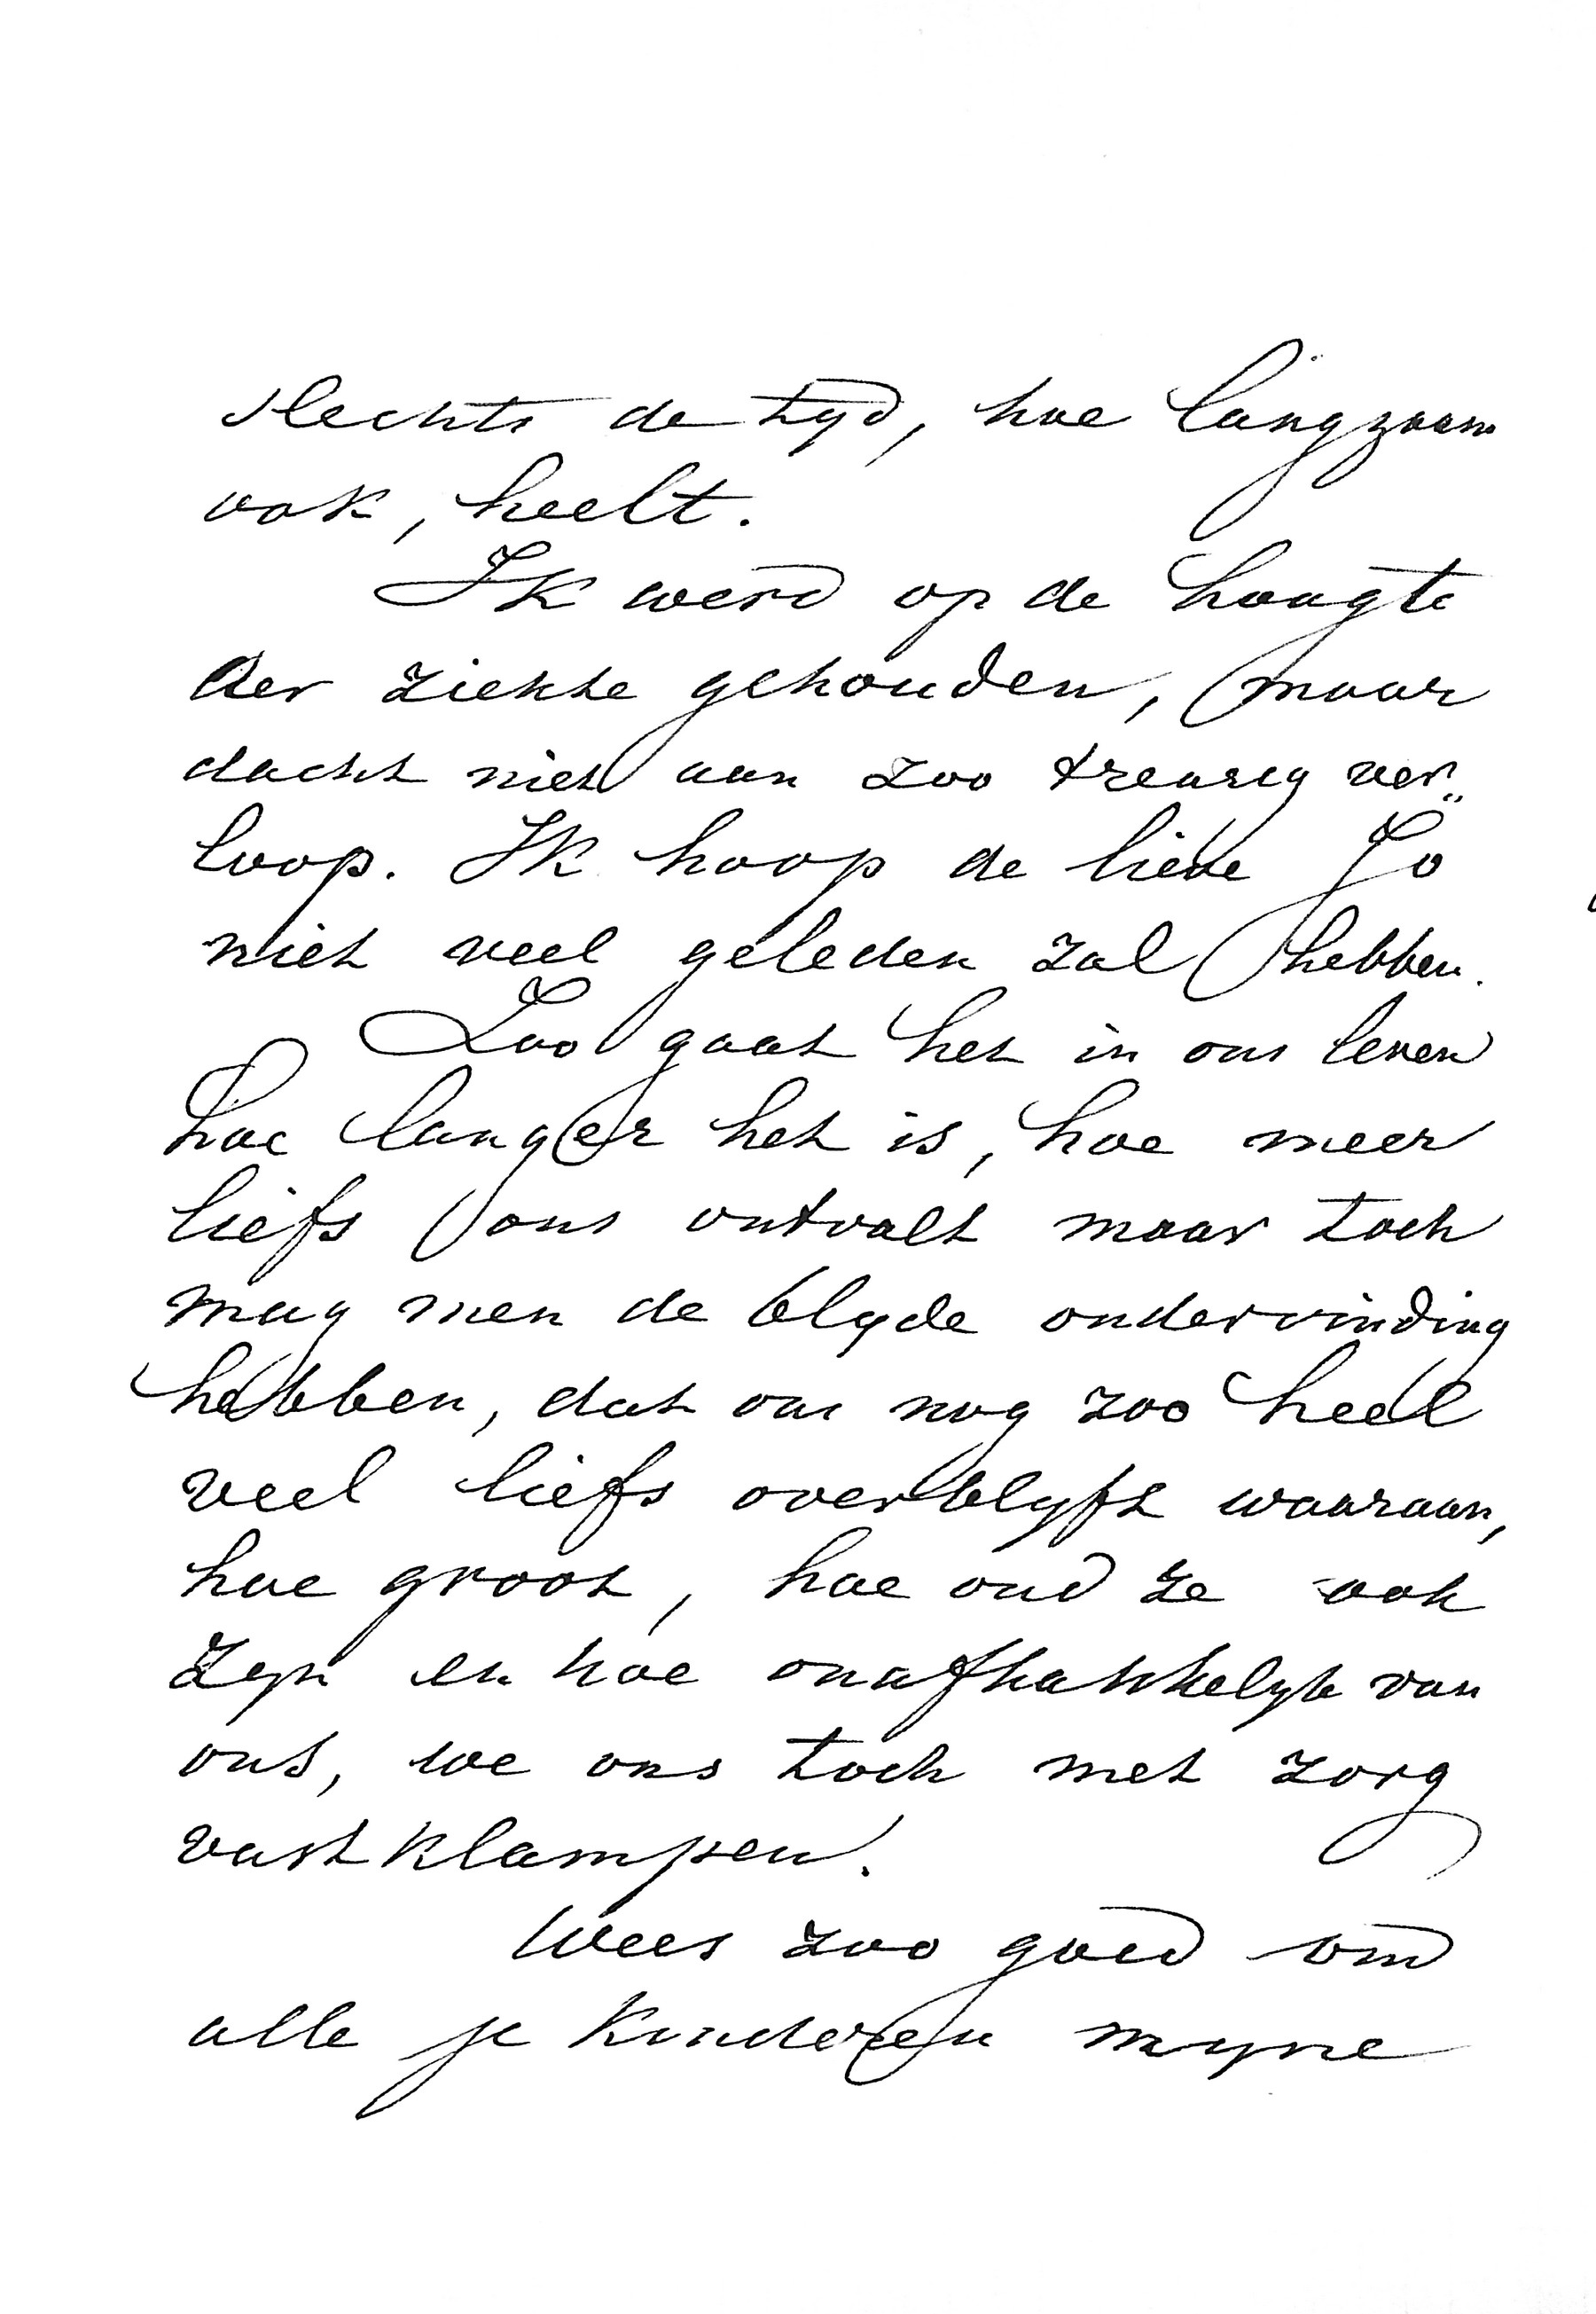 slechts de tyd, hoe langzaam
ook, heelt.
Ik werd op de hoogte
der ziekte gehouden, maar
dacht niet aan zoo treurig ver„
loop. Ik hoop de lieve Jo
niet veel geleden zal hebben.
Zoo gaat het in ons leven
hoe langer het is, hoe meer
liefs ons ontvalt maar toch
mag men de blyde ondervinding
hebben, dat ons nog zoo heel
veel liefs overblyft waaraan,
hoe groot, hoe oud ze ook
zyn en hoe onafhankelyk van
ons, we ons toch met zorg
vastklampen.
Wees zoo goed om
alle je kinderen myne